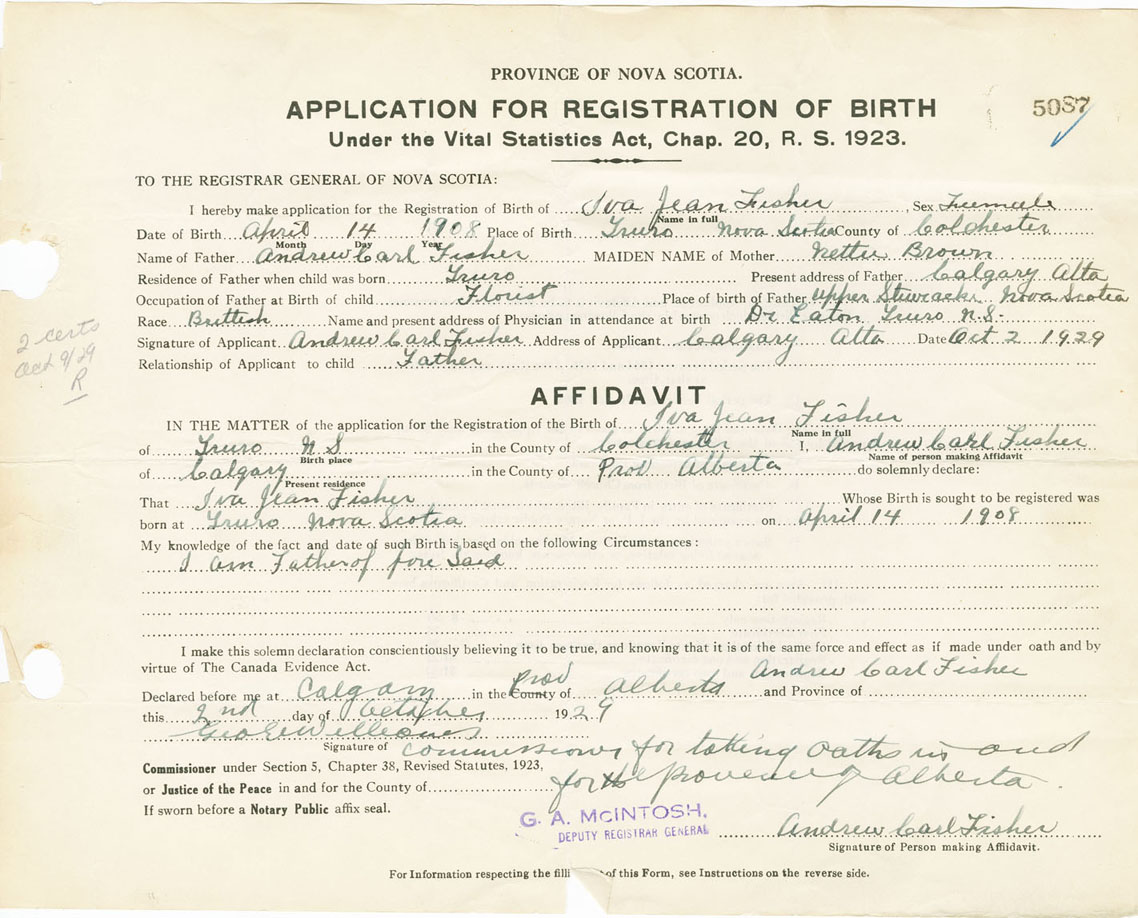 PROVINCE OF NOVA SCOTIA.
APPLICATION FOR REGISTRATION OF BIRTH
5087
Under the Vital Statistics Act, Chap. 20, R. S. 1923.
TO THE REGISTRAR GENERAL OF NOVA SCOTIA:
I hereby make application for the Registration of Birth of Iva Jean Fisher, Sex Fumale
Name in full
Date of Birth April 14 1908 Place of Birth Truro Nova Scotia County of Colchester
Month Day Year
Name of Father Andrew Carl Fisher MAIDEN NAME of Mother Nettie Brown
Residence of Father when child was born Truro Present address of Father Calgary Alta
Occupation of Father at Birth of child Florist Place of birth of Father Upper Nova Scotia
Race Brittish Name and present address of Physician in attendance at birth Dr Eaton Truro N.S.
Signature of Applicant Andrew Carl Fisher Address of Applicant Calgary Alta Date Oct 2 1929
Relationship of Applicant to child Father
2 certs
Oct 9/29
R
AFFIDAVIT
IN THE MATTER of the application for the Registration of the Birth of Iva Jean Fisher
Name in full
of Truro N S in the County of Colchester I, Andrew Carl Fisher
Birth place Name of person making Affidavit
of Calgary in the County of Prov Alberta do solemnly declare:
Present residence
That Iva Jean Fisher Whose Birth is sought to be registered was
born at Truro Nova Scotia on April 14 1908
My knowledge of the fact and date of such Birth is based on the following Circumstances:
I am Father of fore Said
I make this solemn declaration conscientiously believing it to be true, and knowing that it is of the same force and effect as if made under oath and by
virtue of The Canada Evidence Act.
Andrew Carl Fisher
Prov
Declared before me at Calgary in the County of Alberta and Province of
this 2nd day of October 1929
Signature of Commissioner for taking oaths in and
Commissioner under Section 5, Chapter 38, Revised Statutes, 1923,
for the Province of Alberta.
or Justice of the Peace in and for the County of
If sworn before a Notary Public affix seal.
G. A. McINTOSH,
DEPUTY REGISTRAR GENERAL
Andrew Carl Fisher
Signature of Person making Affidavit.
For Information respecting the filli of this Form, see Instructions on the reverse side.